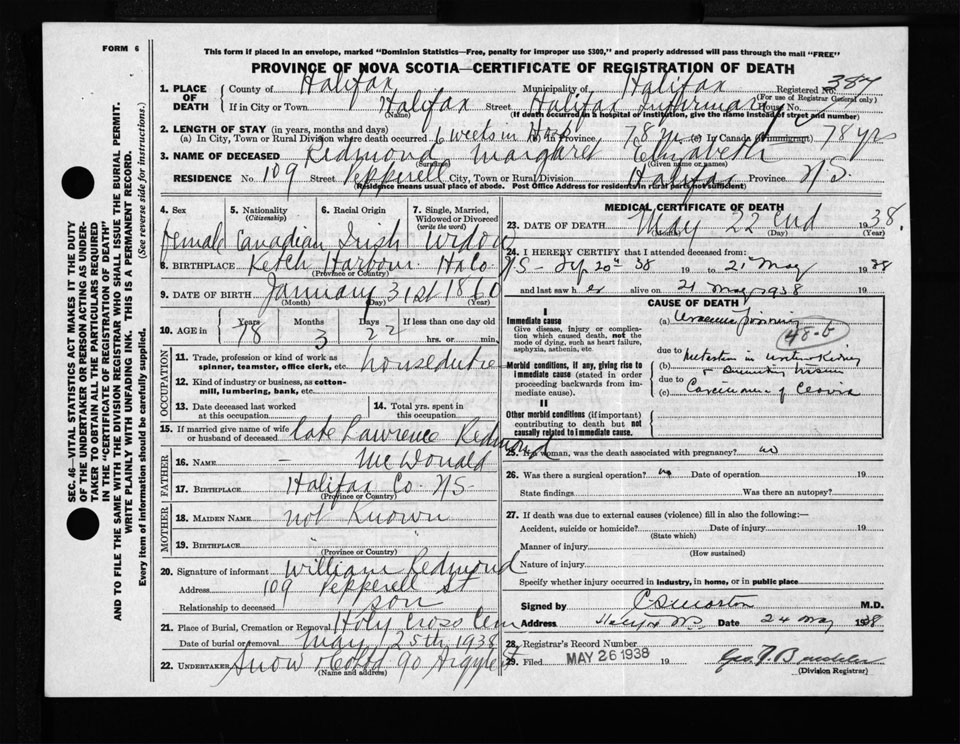 FORM 6
This form if placed in an envelope, marked "Dominion Statistics—Free, penalty for improper use $300," and properly addressed will pass through the mail "FREE"
PROVINCE OF NOVA SCOTIA—CERTIFICATE OF REGISTRATION OF DEATH
1. PLACE OF DEATH
County of Halifax Municipality of Halifax Registered No. 387
(For use of Registrar General only)
If in City or Town Halifax Street Halifax Infirmary House No.
(Name) (If death occurred in a hospital or institution, give the name instead of street and number)
2. LENGTH OF STAY (in years, months and days)
(a) In City, Town or Rural Division where death occurred 6 weeks in Hosp (b) In Province 78 yrs (c) In Canada (if immigrant) 78 yrs
3. NAME OF DECEASED Redmond Margaret Elizabeth
(Surname) (Given name or names)
RESIDENCE No. 109 Street Pepperell City, Town or Rural Division Halifax Province N.S.
(Residence means usual place of abode. Post Office Address for residents in rural parts not sufficient)
4. Sex
Female
5. Nationality
(Citizenship)
Canadian
6. Racial Origin
Irish
7. Single, Married, Widowed or Divorced
(write the word)
Widow
8. BIRTHPLACE Ketch Harbour Ha Co N.S.
(Province or Country)
9. DATE OF BIRTH January 31st 1860
(Month) (Day) (Year)
10. AGE in Years Months Days If less than one day old
78 3 22 hrs. or min.
OCCUPATION
11. Trade, profession or kind of work as spinner, teamster, office clerk, etc. house duties
12. Kind of industry or business, as cotton-mill, lumbering, bank, etc.
13. Date deceased last worked at this occupation
14. Total yrs. spent in this occupation
15. If married give name of wife or husband of deceased late Lawrence Redmond
FATHER
16. NAME — McDonald
17. BIRTHPLACE Halifax Co. N.S.
(Province or Country)
MOTHER
18. MAIDEN NAME not Known
19. BIRTHPLACE " "
(Province or Country)
20. Signature of informant William Redmond
Address 109 Pepperell St
Relationship to deceased son
21. Place of Burial, Cremation or Removal Holy Cross Cem
Date of burial or removal May 25th, 1938
22. UNDERTAKER Snow & Co Ltd 90 Argyle St
(Name and address)
MEDICAL CERTIFICATE OF DEATH
23. DATE OF DEATH May 22 end 1938.
(Month) (Day) (Year)
24. I HEREBY CERTIFY that I attended deceased from:
20th 38 19 to 21 May 1938
and last saw her alive on 21 May 1938 19
CAUSE OF DEATH
I
Immediate cause
Give disease, injury or complication which caused death, not the mode of dying, such as heart failure, asphyxia, asthenia, etc.
(a)
48-b
Morbid conditions, if any, giving rise to immediate cause (stated in order proceeding backwards from immediate cause).
due to
(b)
due to
(c) Carcinoma of
II
Other morbid conditions (if important) contributing to death but not causally related to immediate cause.
25. If a woman, was the death associated with pregnancy? no
26. Was there a surgical operation? no Date of operation 19
State findings Was there an autopsy?
27. If death was due to external causes (violence) fill in also the following:—
Accident, suicide or homicide? Date of injury 19
(State which)
Manner of injury
(How sustained)
Nature of injury
Specify whether injury occurred in industry, in home, or in public place
Signed by M.D.
Address Halifax N.S. Date 24 May 1938
28. Registrar's Record Number
29. Filed MAY 26 1938 19
(Division Registrar)
SEC. 46—VITAL STATISTICS ACT MAKES IT THE DUTY
OF THE UNDERTAKER OR PERSON ACTING AS UNDER-
TAKER TO OBTAIN ALL THE PARTICULARS REQUIRED
IN THE "CERTIFICATE OF REGISTRATION OF DEATH"
AND TO FILE THE SAME WITH THE DIVISION REGISTRAR WHO SHALL ISSUE THE BURIAL PERMIT.
WRITE PLAINLY WITH UNFADING INK. THIS IS A PERMANENT RECORD.
Every item of information should be carefully supplied. (See reverse side for instructions.)